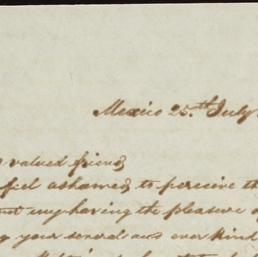 Mexico 25.th July
valued friend
feel ashamed to perceive th
my having the pleasure o
your several and ever kind